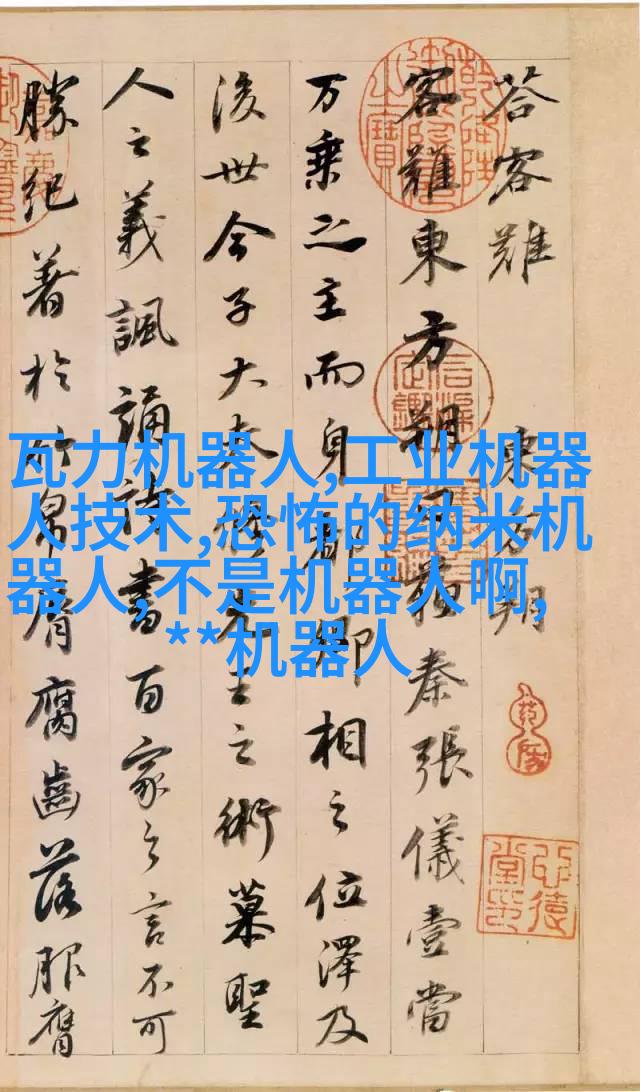 荅客難 東方朔
客難東方朔曰蘇秦張儀壹當
万乘之主而身都卿相之位澤及
後世今子大夫修先王之術慕聖
人之義諷誦詩書百家之言不可
勝紀著於竹帛脣腐齒落服膺
瓦力机器人,工业机器
人技术,恐怖的纳米机
器人,不是机器人啊,
**机器人